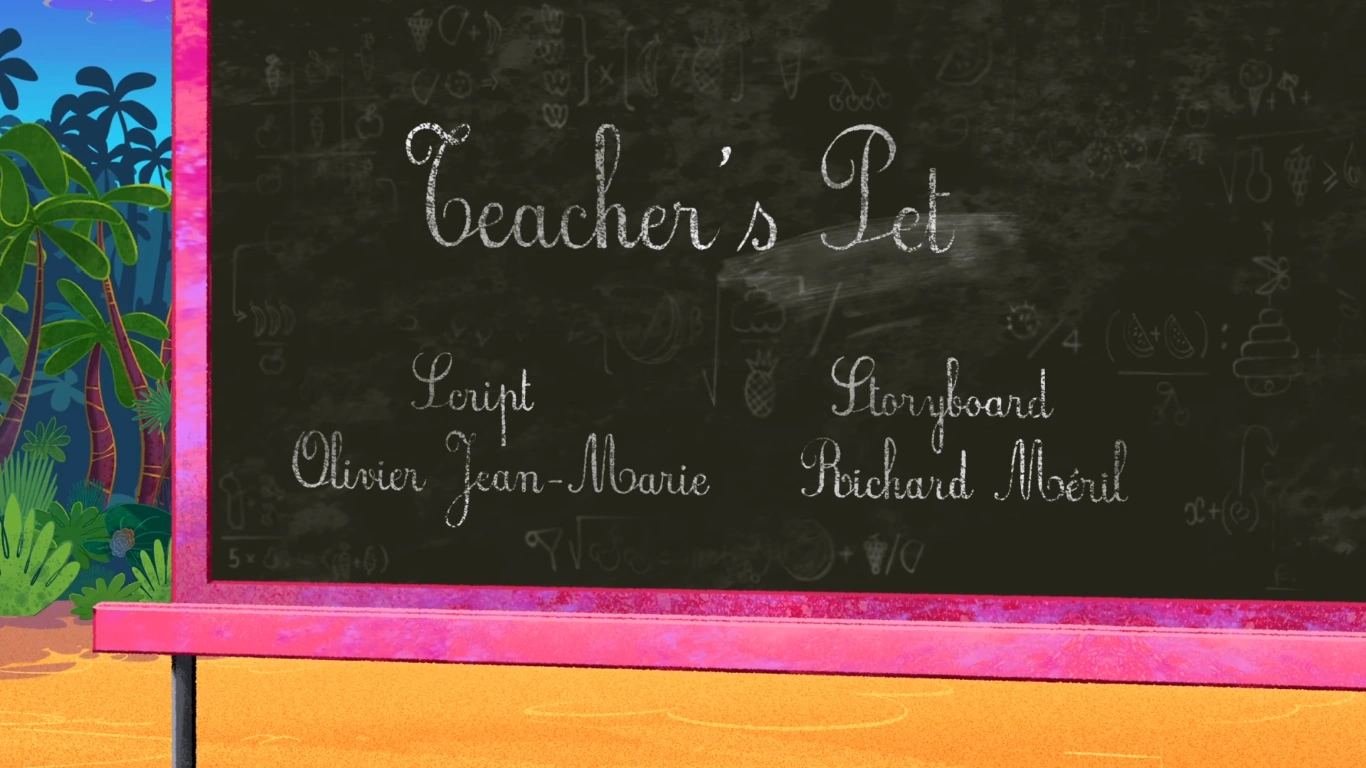 Teacher's Pet
Script
Olivier Jean-Marie
Storyboard
Richard Méril